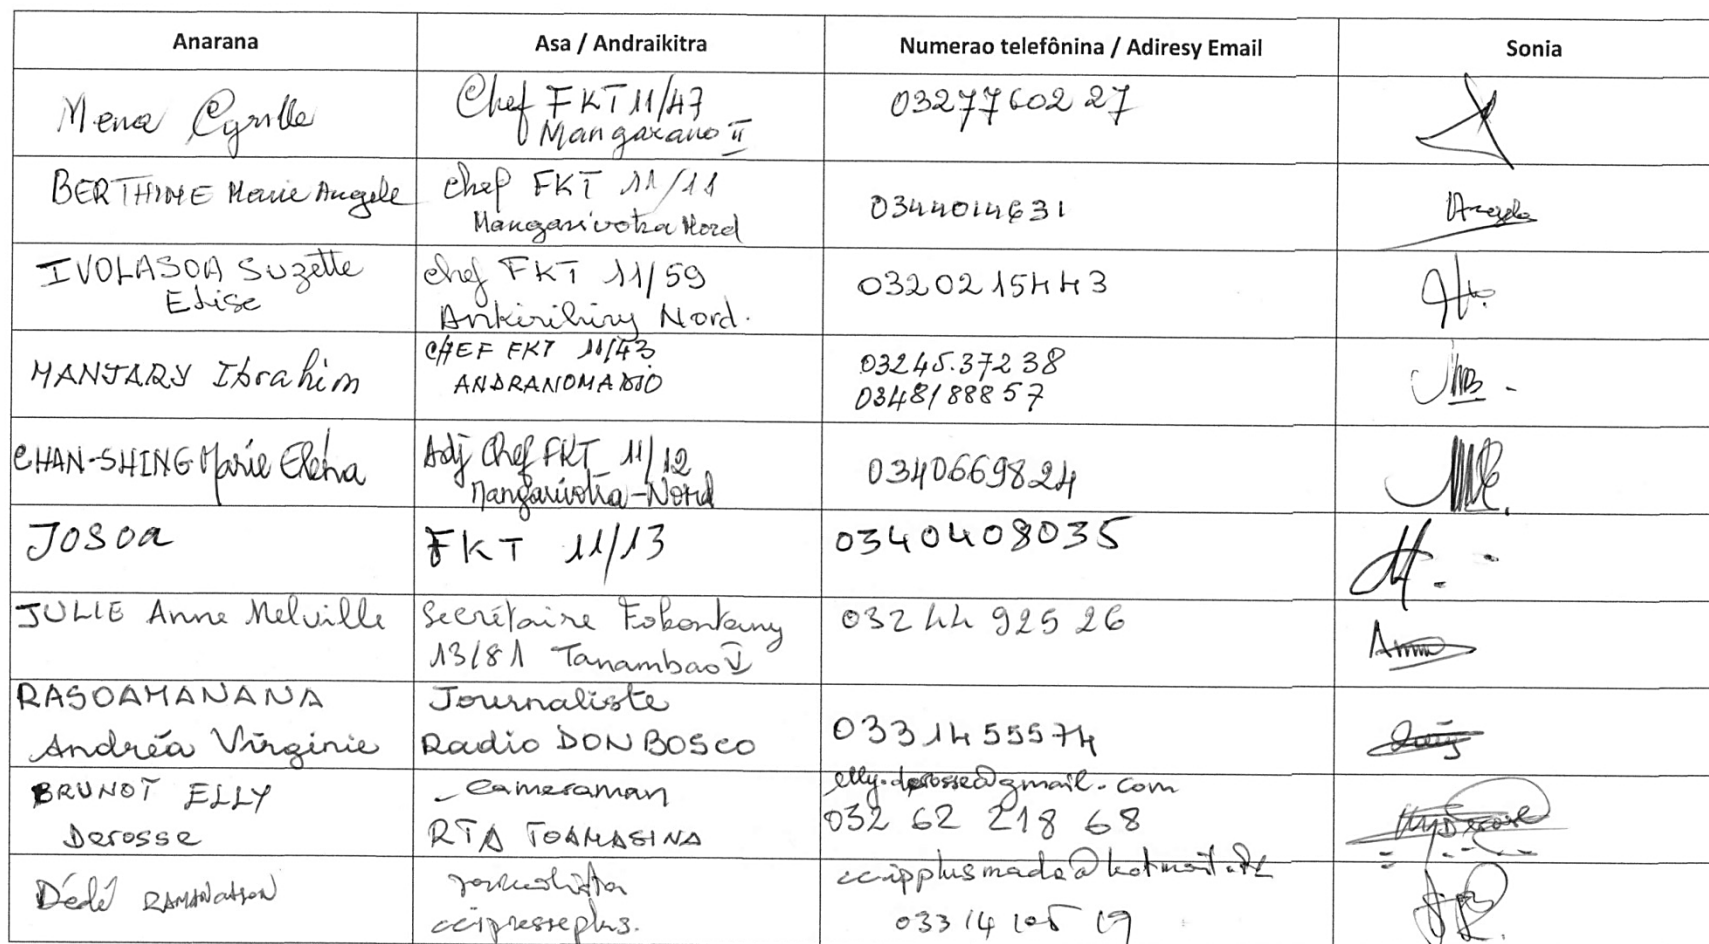 Anarana Asa / Andraikitra Numerao telefônina / Adiresy Email Sonia
Mena Cyrille
Chef FKT 11/47
Mangarano II
0327760227
BERTHINE Marie Angele
Chef FKT 11/11
Mangarivotra Nord
0344014631
Angele
IVOLASOA Suzette
Elise
Chef FKT 11/59
Ankirihiry Nord.
0320215443
MANJARY Ibrahim
CHEF FKT 11/43
ANDRANOMADIO
03245.37238
0348188857
CHAN-SHING Marie Elena
Adj Chef FKT 11/12
Mangarivotra-Nord
0340669824
JOSOA
FKT 11/13
0340408035
JULIE Anne Melville
Secrétaire Fokontany
13/81 Tanambao V
032 44 925 26
Anne
RASOAMANANA
Andréa Virginie
Journaliste
Radio DON BOSCO
0331455574
BRUNOT ELLY
Derosse
- Cameraman
RTA TOAMASINA
elly.derosse@gmail.com
032 62 218 68
Dédé RAMANATSON
journalista
ccipresseplus.
033 14 105 19